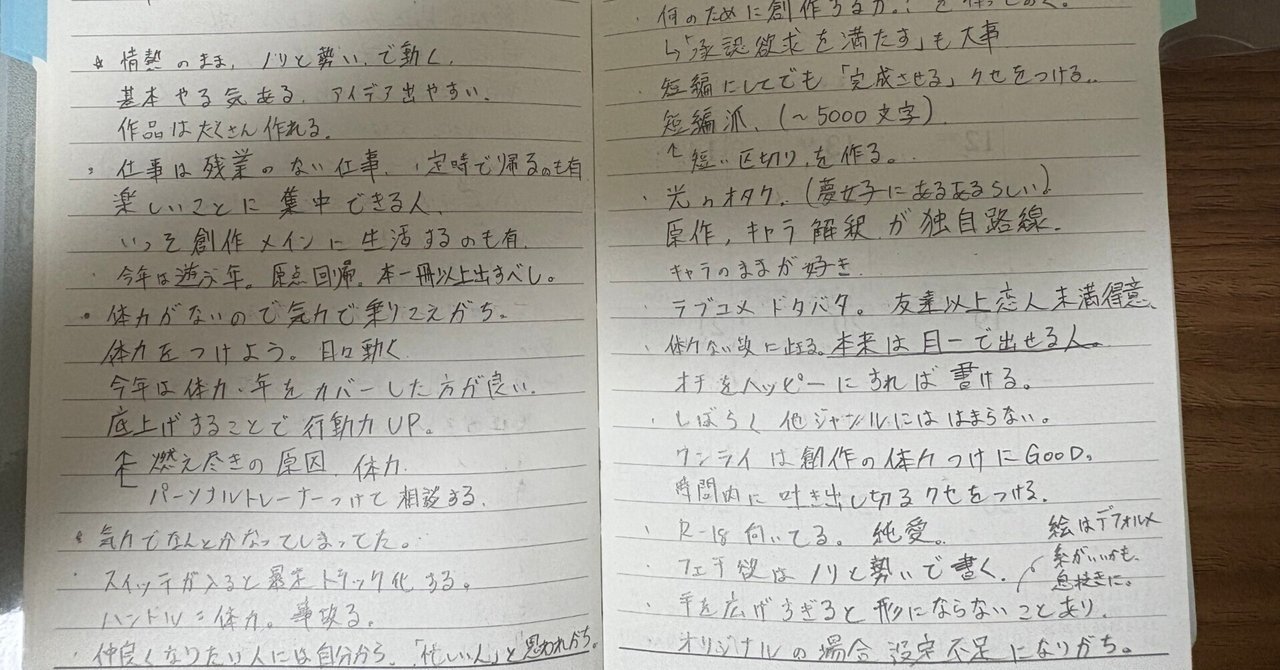 情熱のまま、ノリと勢いで動く。
基本やる気ある、アイデア出やすい。
作品はたくさん作れる。
・仕事は残業のない仕事、定時で帰るのも有
楽しいことに集中できる人。
いっそ創作メインに生活するのも有。
・今年は遊ぶ年。原点回帰。本一冊以上出すべし。
・体力がないので気力で乗りこえがち。
体力をつけよう。日々動く
今年は体力・年をカバーした方が良い。
底上げすることで行動力UP。
↑燃え尽きの原因、体力
パーソナルトレーナーつけて相談する。
・気力でなんとかなってしまってた。
・スイッチが入ると暴走トラック化する。
ハンドル=体力。事故る。
・仲良くなりたい人には自分から。「忙しい人」と思われがち。
・何のために創作するか?を
↳「承認欲求を満たす」も大事
短編にしてでも「完成させる」クセをつける。
短編派、(~5000文字)
↑短い区切りを作る。
・光のオタク。(夢女子にあるあるらしい)
原作、キャラ解釈が独自路線。
キャラのままが好き
・ラブコメドタバタ。友達以上恋人未満得意、
・体力ない故に止まる。本来は月一で出せる人。
オチをハッピーにすれば書ける。
・しばらく他ジャンルにははまらない。
・ワンライは創作の体力つけにGOOD。
時間内に吐き出し切るクセをつける。
・R-18向いてる。純愛。
絵はデフォルメ
系がいいかも、
息抜きに。
・フェチ欲はノリと勢いで書く。
・手を広げすぎると形にならないことあり。
・オリジナルの場合設定不足になりがち。